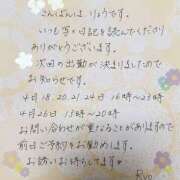 こんばんは、りょうです。
いつも写メ日記を読んでくださり
ありがとうございます。
次回の出勤が決まりましたので
お知らせです。
4月18.20.21.24日 16時〜23時
4月26日 15時〜20時
お問い合わせが重なることがありますので
前日ご予約をお勧めします。
お誘いお待ちしてます♡
Ryo